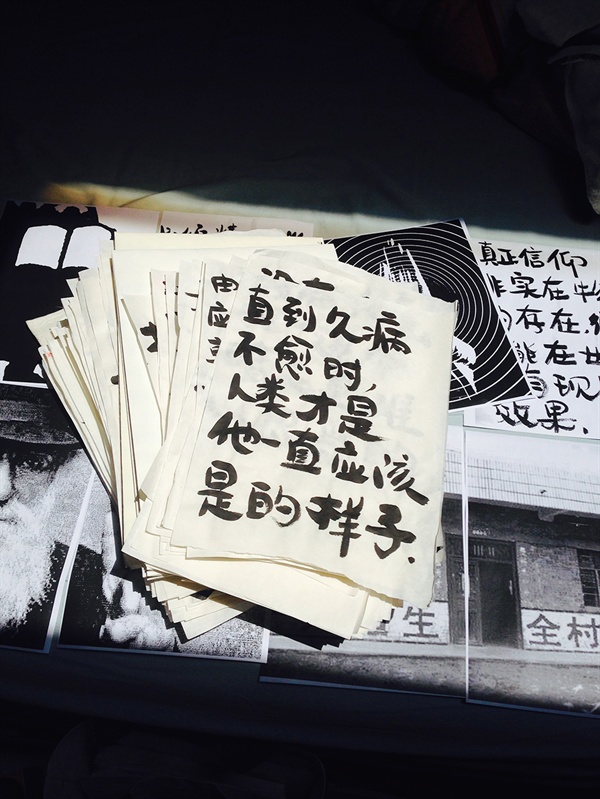 直到久病
不愈时,
人类才是
他一直应该
是的样子.
由
应
真正信仰
非实在
存在.
能在世
现
效果.
生
全村